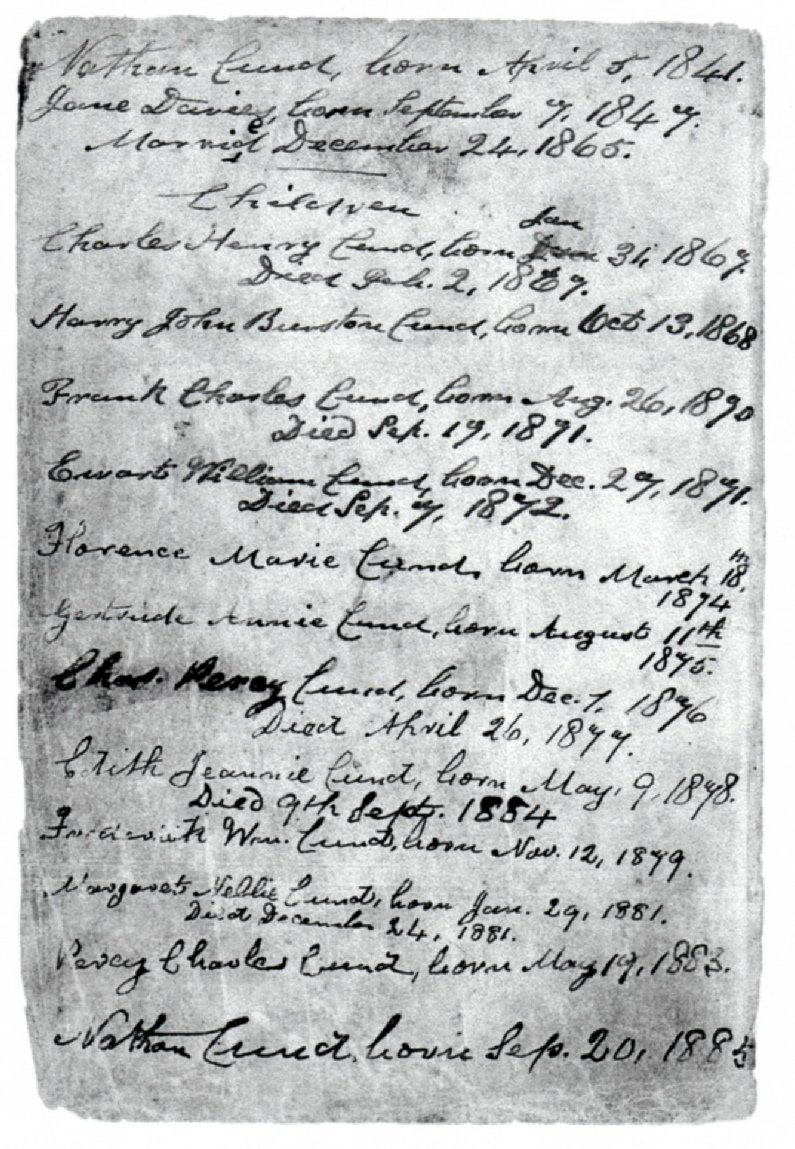 Nathan Cund, born April 5, 1841.
Jane Davies, born September 7, 1847.
Married December 24, 1865.
Children
Jan
Charles Henry Cund, born 31, 1867.
Died Feb. 2, 1867.
Harry John Burston Cund, born Oct 13, 1868
Frank Charles Cund, born Aug. 26, 1870
Died Sep. 19, 1871.
Ewart William Cund, born Dec. 27, 1871.
Died Sep. 7, 1872.
Florence Marie Cund, born March 18th.
1874
Gertrude Annie Cund, born August 11th
1875.
Chas. Percy Cund, born Dec. 7, 1876
Died April 26, 1877.
Edith Jeannie Cund, born May, 9, 1878.
Died 9th Sept. 1884
Frederick Wm. Cund, born Nov. 12, 1879.
Margaret Nellie Cund, born Jan. 29, 1881.
Died December 24, 1881.
Percy Charles Cund, born May 19, 1883.
Nathan Cund, born Sep. 20, 1885